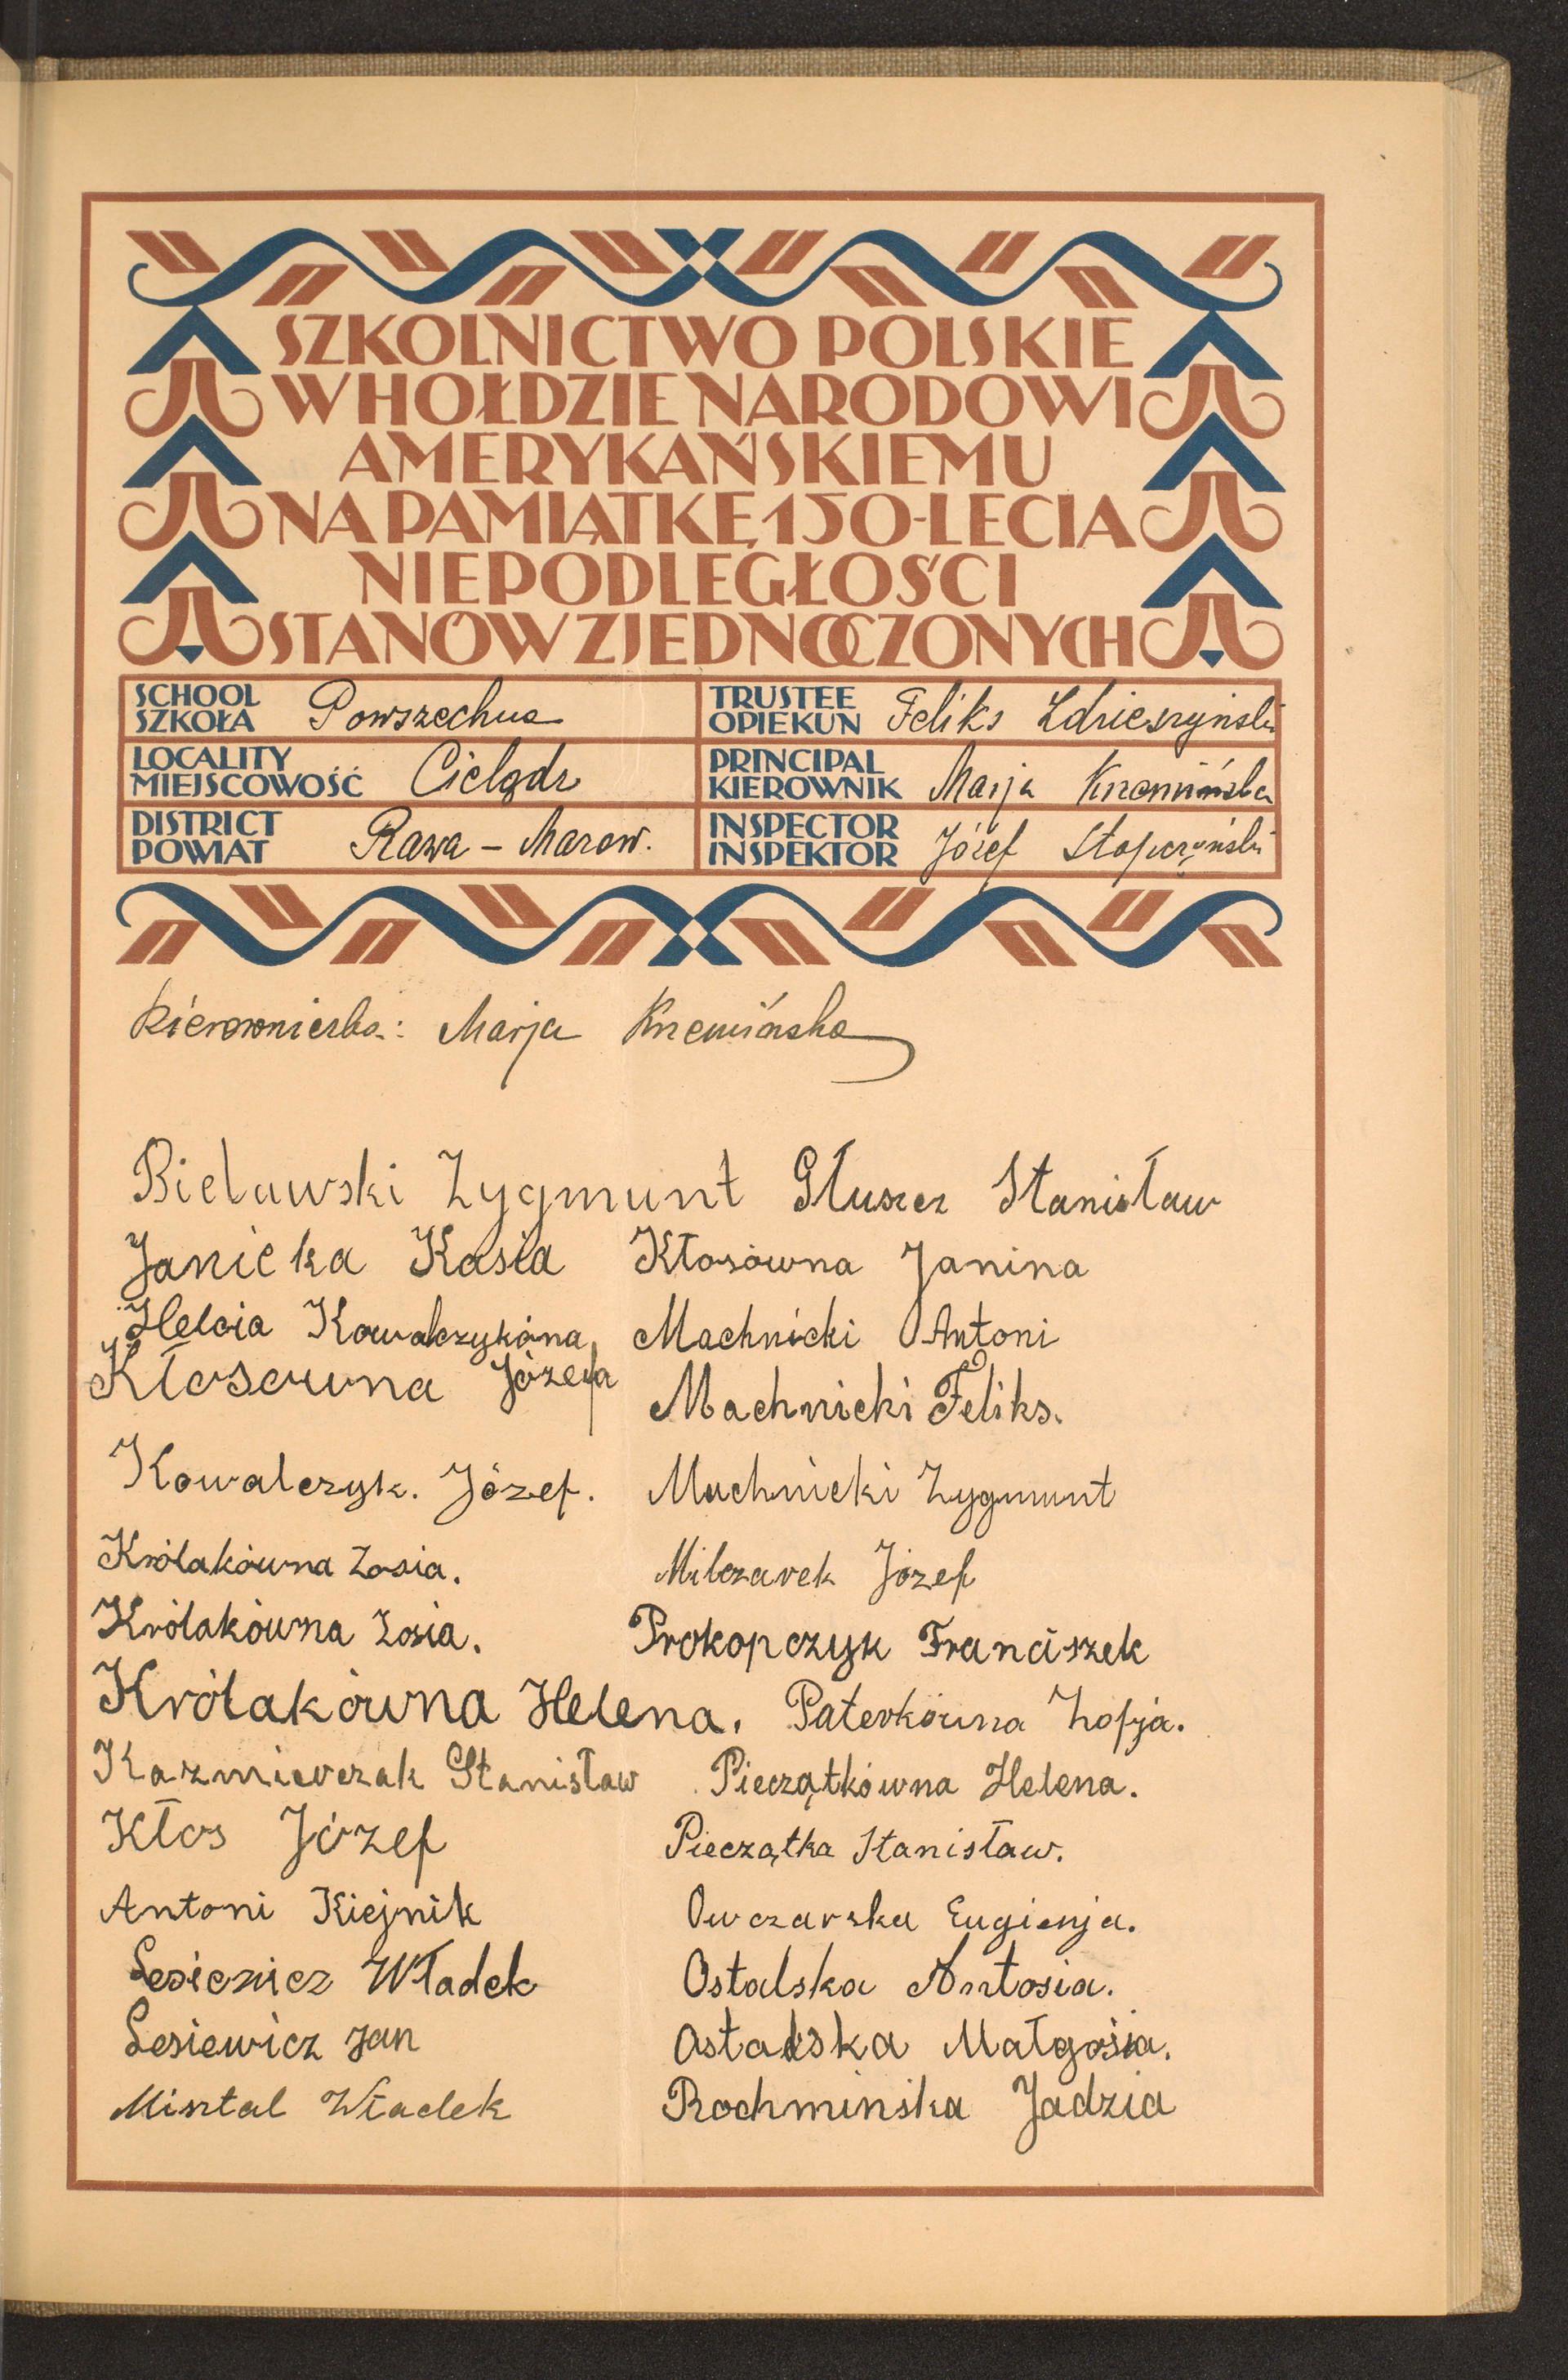 SZKOLNICTWO POLSKIE
W HOŁDZIE NARODOWI
AMERYKAŃSKIEMU
NA PAMIĄTKĘ 150-LECIA
NIEPODLEGŁOŚCI
STANÓW ZJEDNOCZONYCH
SCHOOL
SZKOŁA Powszechna
TRUSTEE
OPIEKUN Feliks
LOCALITY
MIEJSCOWOŚĆ Cielądz
PRINCIPAL
KIEROWNIK Marja Krzemińska
DISTRICT
POWIAT Rawa – Mazow.
INSPECTOR
INSPEKTOR Józef Stopczyński
Kierowniczka: Marja Krzemińska
Bielawski Zygmunt Głuszcz Stanisław
Janicka Kasia Kłosówna Janina
Helcia Kowalczykóna Machnicki Antoni
Kłosowna Józefa Machnicki Feliks.
Kowalczyk. Józef. Machnicki Zygmunt
Królakówna Zosia. Milczarek Józef
Królakówna Zosia. Prokopczyk Franciszek
Królakówna Helena. Paterkówna Zofja.
Kazmierczak Stanisław Pieczątkówna Helena.
Kłos Józef Pieczątka Stanisław.
Antoni Kiejnik Owczarska Eugienja.
Władek Ostalska Antosia.
Lesiewicz Jan Ostalska Małgosia.
Misztal Władek Rochminska Jadzia